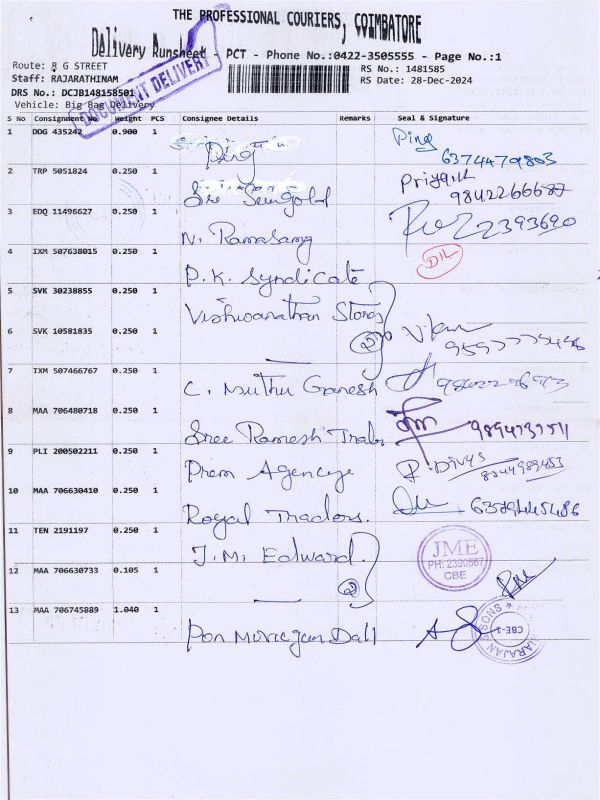 THE PROFESSIONAL COURIERS, COIMBATORE
Delivery Runsheet - PCT - Phone No.:0422-3505555 - Page No.:1
Route: R G STREET
RS No.: 1481585
Staff: RAJARATHINAM
RS Date: 28-Dec-2024
DRS No.: DCJB148158501
Vehicle: Big Bag Delivery
DOCUMENT DELIVERY
S No Consignment No Weight PCS Consignee Details Remarks Seal & Signature
1 DDG 435242 0.900 1 Ping Ping
6374479803
2 TRP 5051824 0.250 1 Sre Sungold
3 EDQ 11496627 0.250 1 N. Ramasamy 2393690
4 IXM 507638015 0.250 1 P.K. Syndicate DIL
5 SVK 30238855 0.250 1 Vishwanathan Stores
6 SVK 10581835 0.250 1 (2)
7 IXM 507466767 0.250 1 C. Muthu Ganesh
8 MAA 706480718 0.250 1 Sree Ramesh
9 PLI 200502211 0.250 1 Prem P. Divya
8344989453
10 MAA 706630410 0.250 1 Royal Tradors.
11 TEN 2191197 0.250 1 J.M. Edward
JME
PH: 2390567
CBE
12 MAA 706630733 0.105 1 (2)
13 MAA 706745889 1.040 1 Pon Murugan Dall
CBE-1